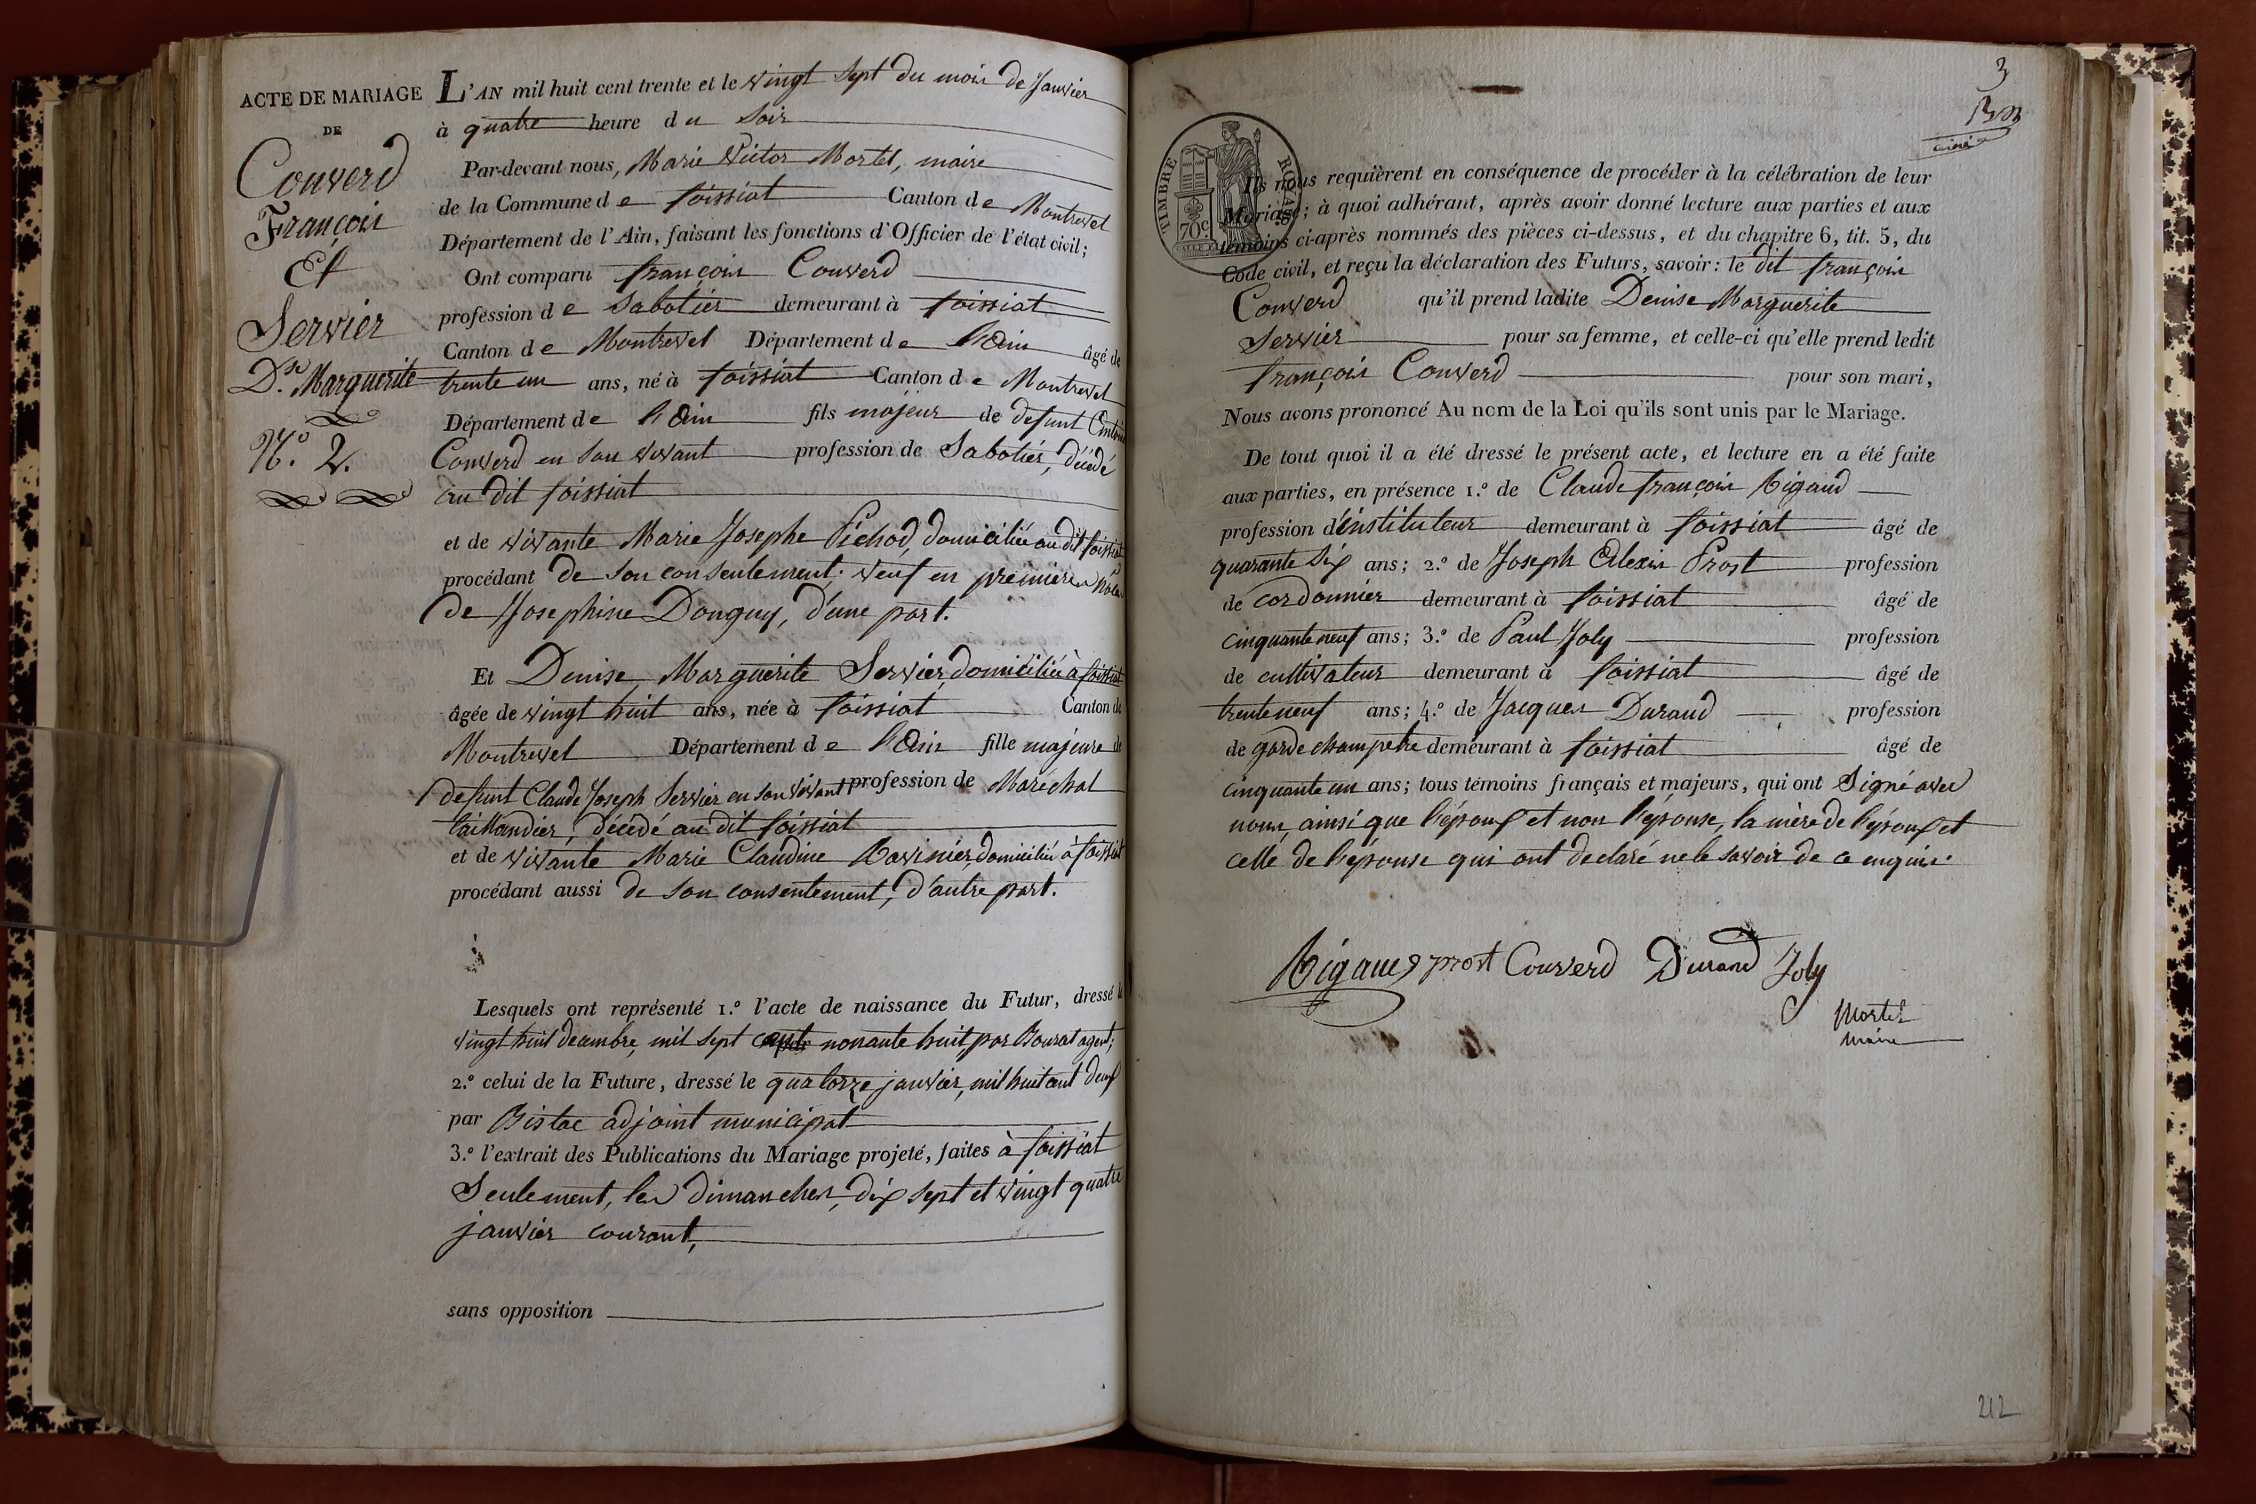 ACTE DE MARIAGE
DE
Converd
François
Et
Servier
D.se Marguerite
N.o 2.
L'AN mil huit cent trente et le vingt sept du mois de Janvier
à quatre heure du Soir
Par-devant nous, Marie Victor Mortel, maire
de la Commune de foissiat Canton de Montrevel
Département de l'Ain, faisant les fonctions d'Officier de l'état civil;
Ont comparu françois Converd
profession de Sabotier demeurant à foissiat
Canton de Montrevel Département de l'Ain âgé de
trente un ans, né à foissiat Canton de Montrevel
Département de l'Ain fils majeur de defunt Antoine
Converd en son vivant profession de Sabotier, décédé
au dit foissiat
et de vivante Marie Josephe Pichod, domiciliée au dit foissiat
procédant de son consentement; veuf en premières nôces
de Josephine Donguy, d'une part.
Et Denise Marguerite Servier, domiciliée à foissiat
âgée de vingt huit ans, née à foissiat Canton de
Montrevel Département de l'Ain fille majeure de
defunt Claude Joseph Servier en son vivant profession de Maréchal
taillandier, décédé au dit foissiat
et de vivante Marie Claudine Ravinier, domiciliée à foissiat
procédant aussi de son consentement, d'autre part.
Lesquels ont représenté 1.o l'acte de naissance du Futur, dressé le
vingt huit decembre, mil sept cent nonante huit, par Bourat agent;
2.o celui de la Future, dressé le quatorze janvier, mil huit cent deux
par Bistac adjoint municipal
3.o l'extrait des Publications du Mariage projeté, faites à foissiat
Seulement, les dimanches, dix sept et vingt quatre
janvier courant,
sans opposition
3
TIMBRE ROYAL
70c
Ils nous requièrent en conséquence de procéder à la célébration de leur
Mariage; à quoi adhérant, après avoir donné lecture aux parties et aux
témoins ci-après nommés des pièces ci-dessus, et du chapitre 6, tit. 5, du
Code civil, et reçu la déclaration des Futurs, savoir: le dit françois
Converd qu'il prend ladite Denise Marguerite
Servier pour sa femme, et celle-ci qu'elle prend ledit
françois Converd pour son mari,
Nous avons prononcé Au nom de la Loi qu'ils sont unis par le Mariage.
De tout quoi il a été dressé le présent acte, et lecture en a été faite
aux parties, en présence 1.o de Claude françois Rigaud
profession d'instituteur demeurant à foissiat âgé de
quarante six ans; 2.o de Joseph Alexis Prost profession
de cordonnier demeurant à foissiat âgé de
cinquante neuf ans; 3.o de Paul Joly profession
de cultivateur demeurant à foissiat âgé de
trente neuf ans; 4.o de Jacques Durand profession
de garde champetre demeurant à foissiat âgé de
cinquante un ans; tous témoins français et majeurs, qui ont Signé avec
nous, ainsi que l'époux et non l'épouse, la mère de l'époux et
celle de l'épouse qui ont declaré ne le savoir de ce enquis.
Rigaud prost Converd Durand Joly
Mortel
maire
212